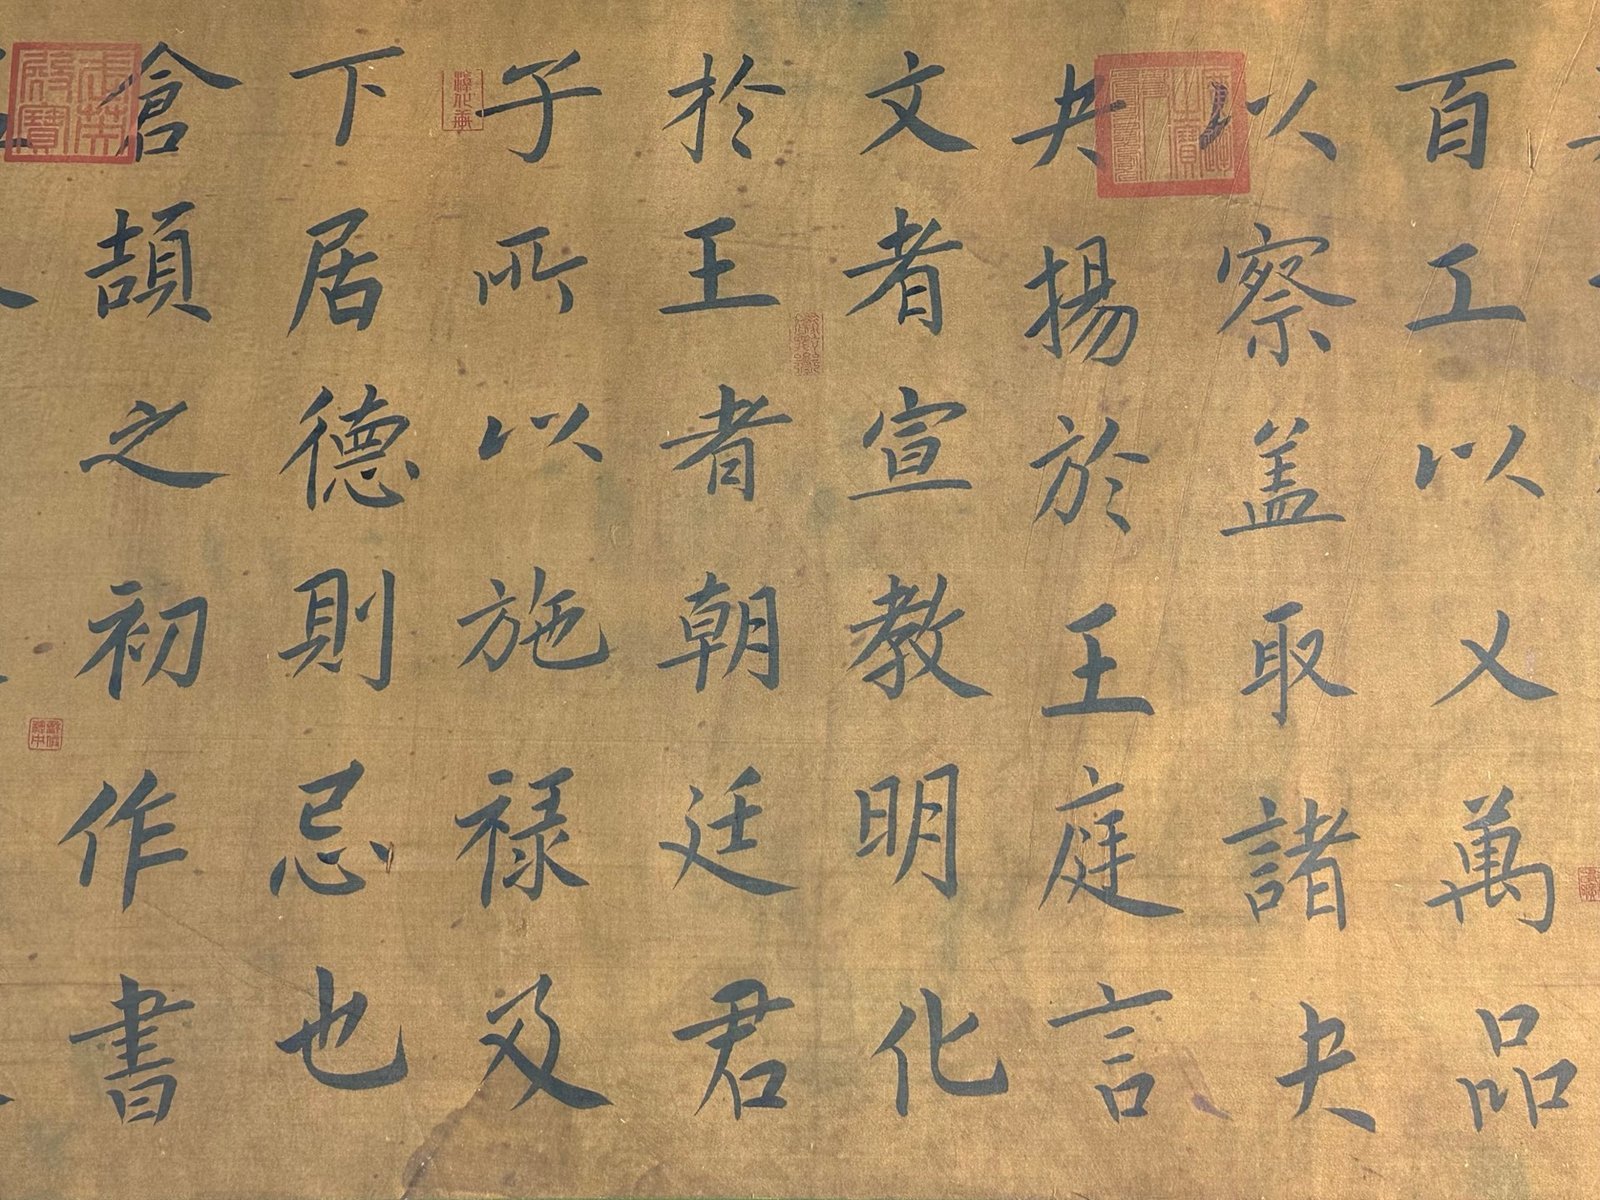 百工以乂萬品
以察蓋取諸夬
夬揚於王庭言
文者宣教明化
於王者朝廷君
子所以施祿及
下居德則忌也
倉頡之初作書